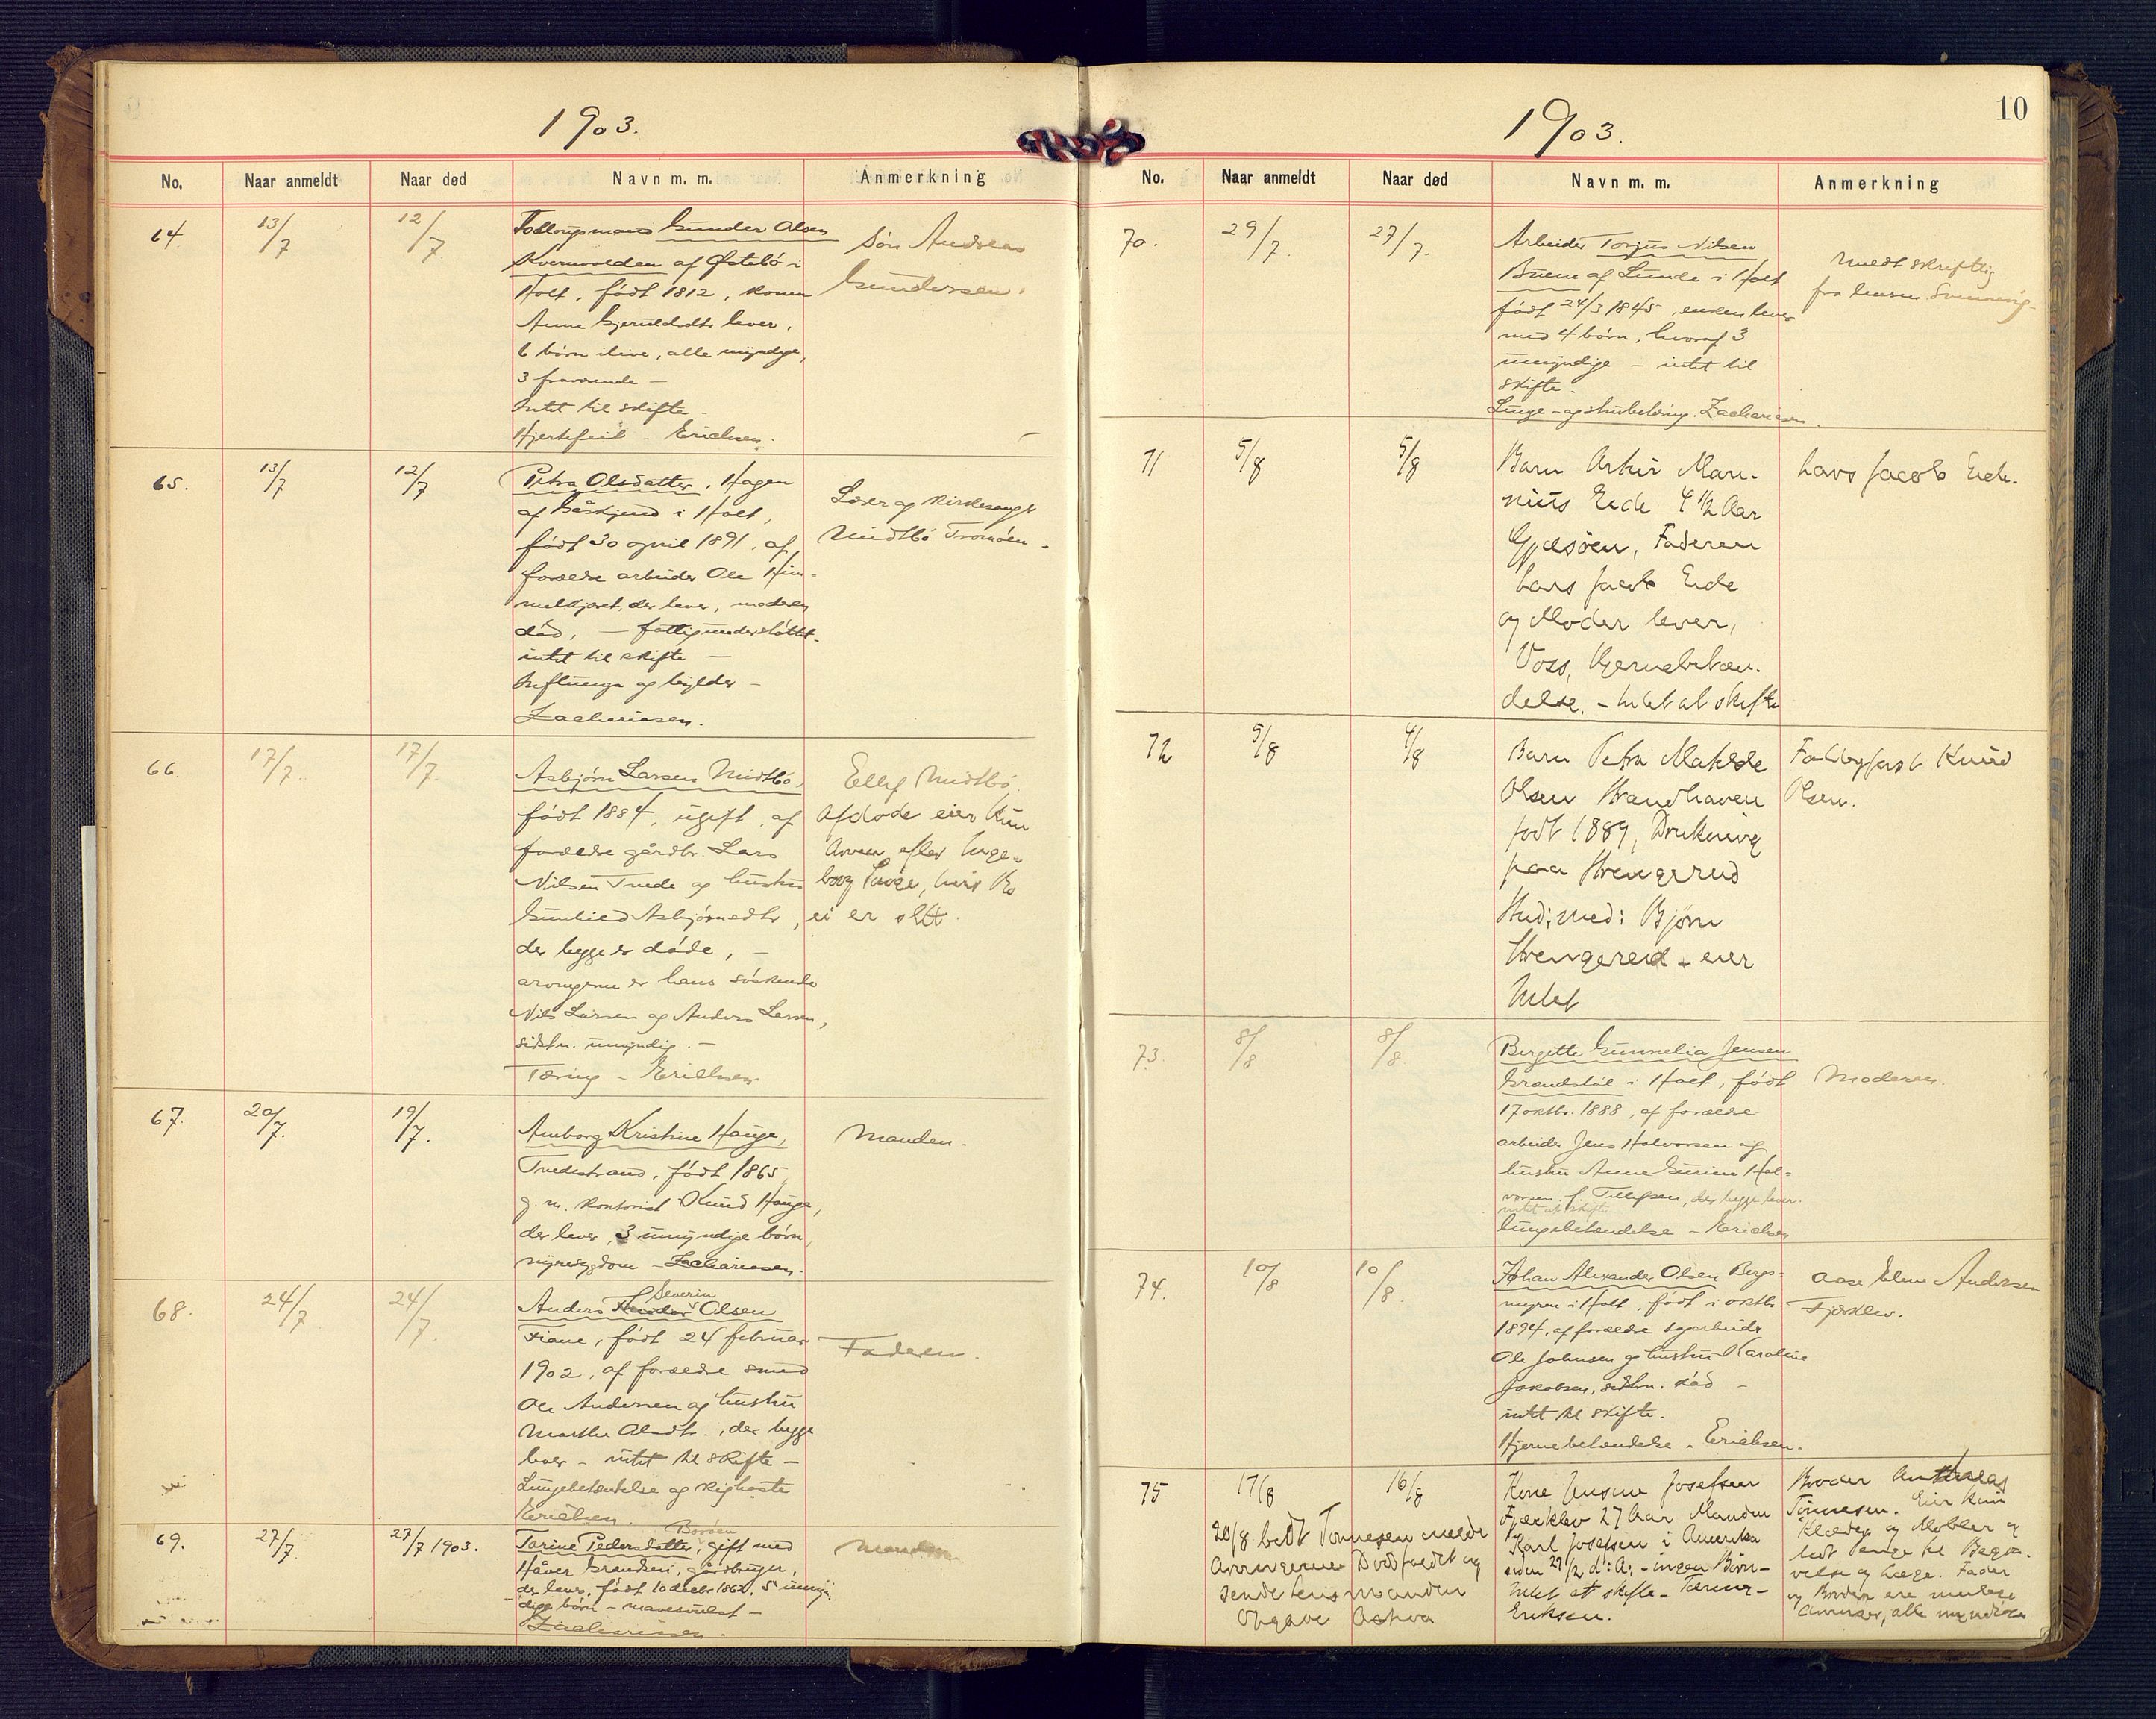 1903.
No. Naar anmeldt Naar død Navn m. m. Anmerkning
64 13/7 12/7 Gunder Olsen
Kvernvolden af Østebö i
Holt, født 1812, konen
Anne Gjeruldsdtr lever,
6 børn ilive, alle myndige,
3 fraværende –
Intet til skifte –
Hjertefeil – Erichsen.
Søn Andreas
Gundersen.
65. 13/7 12/7 Petra Olsdatter, Hagen
af i Holt,
født 30 april 1891, af
forældre arbeider Ole Him-
melkjæret, der lever, moderen
död, – fattigunderstöttet –
intet til skifte –
Influenza og bylder –
Zachariasen.
Lærer og kirkesanger
Midtbö Tromøen.
66. 17/7. 17/7. Asbjørn Larsen Midtbö,
født 1884, ugift, af
forældre gårdbr. Lars
Nilsen Tvede og hustru
Gunhild Asbjørnsdtr,
der begge er döde, –
arvingerne er hans söskende
Nils Larsen og Anders Larsen,
sidstn. umyndig. –
Tæring – Erichsen
Ellef Midtbö.
Afdøde eier kun
Arven efter Inge-
borg Tvede, hvis Bo
ei er slttt.
67. 20/7. 19/7. Amborg Kristine Hauge,
Tvedestrand, født 1865,
g. m. kontorist Knud Hauge,
der lever, 3 umyndige børn,
nyresygdom – Zachariasen.
Manden.
68. 24/7 24/7 Anders Severin Olsen
Fiane, født 24 februar
1902, af forældre smed
Ole Andersen og hustru
Marthe Olsdtr., der begge
lever – intet til skifte –
Lungebetændelse og kighoste
Erichsen.
Faderen.
69. 27/7 27/7 1903. Borøen
Tarine Pedersdatter, gift med
Håver Grandsen, gårdbruger,
der lever, født 10 decbr 1862, 5 umyn-
dige børn – mavesvulst –
Zachariasen.
Manden
10
1903.
No. Naar anmeldt Naar død Navn m. m. Anmerkning
70. 29/7. 27/7. Arbeider Torjus Nilsen
Buene af Lunde i Holt
født 24/3 1845, enken lever
med 4 børn, hvoraf 3
umyndige – intet til
skifte.
Zachariasen.
meldt skriftlig
fra lensm.
71 5/8 5/8 Barn Artur Mari-
nius Eide 4 1/2 Aar
Gjæsöen, Faderen
Lars Jacob Eide
og Moder lever,
Voss, Hjernebetæn-
delse. – Intet at skifte
Lars Jacob Eide.
72 5/8 4/8 Barn Petra Matilde
Olsen Strandhaven
født 1889, Drukning
paa Strengereid
Stud: med: Bjørn
Strengereid – eier
Intet
Knud
Olsen.
73. 8/8 8/8 Bergitte Gunnelia Jensen
Grændstöl i Holt, født
17 oktbr. 1888, af forældre
arbeider Jens Halvorsen og
hustru Anne Gurine Hal-
vorsen f. Tellefsen, der begge lever.
intet at skifte
lungebetændelse – Erichsen
Moderen.
74. 10/8 10/8. Johan Alexander Olsen Bergs-
myren i Holt, født i oktbr.
1894, af forældre sagarbeider
Ole Johnsen og hustru Karoline
Jakobsen, sidstn. död –
intet til skifte.
Hjernebetændelse – Erichsen.
Aase Andersen
Fjærklev.
75 17/8 16/8 Kone Jensine Josefsen
Fjærklev 27 Aar Manden
Karl Josefsen i Amerika
siden 27/2 d: A: – ingen Børn –
Intet at skifte – Tæring –
Eriksen.
20/8 bedt Tønnesen melde
Arvingerne Dødsfaldet og
sende lensmanden
Opgave Activa
Broder Andreas
Tønnesen. Eier kun
Klæder og Møbler og
lidt Penge til Begra-
velse og Læge. Fader
og Brødre ere mulige
Arvinger, alle myndige